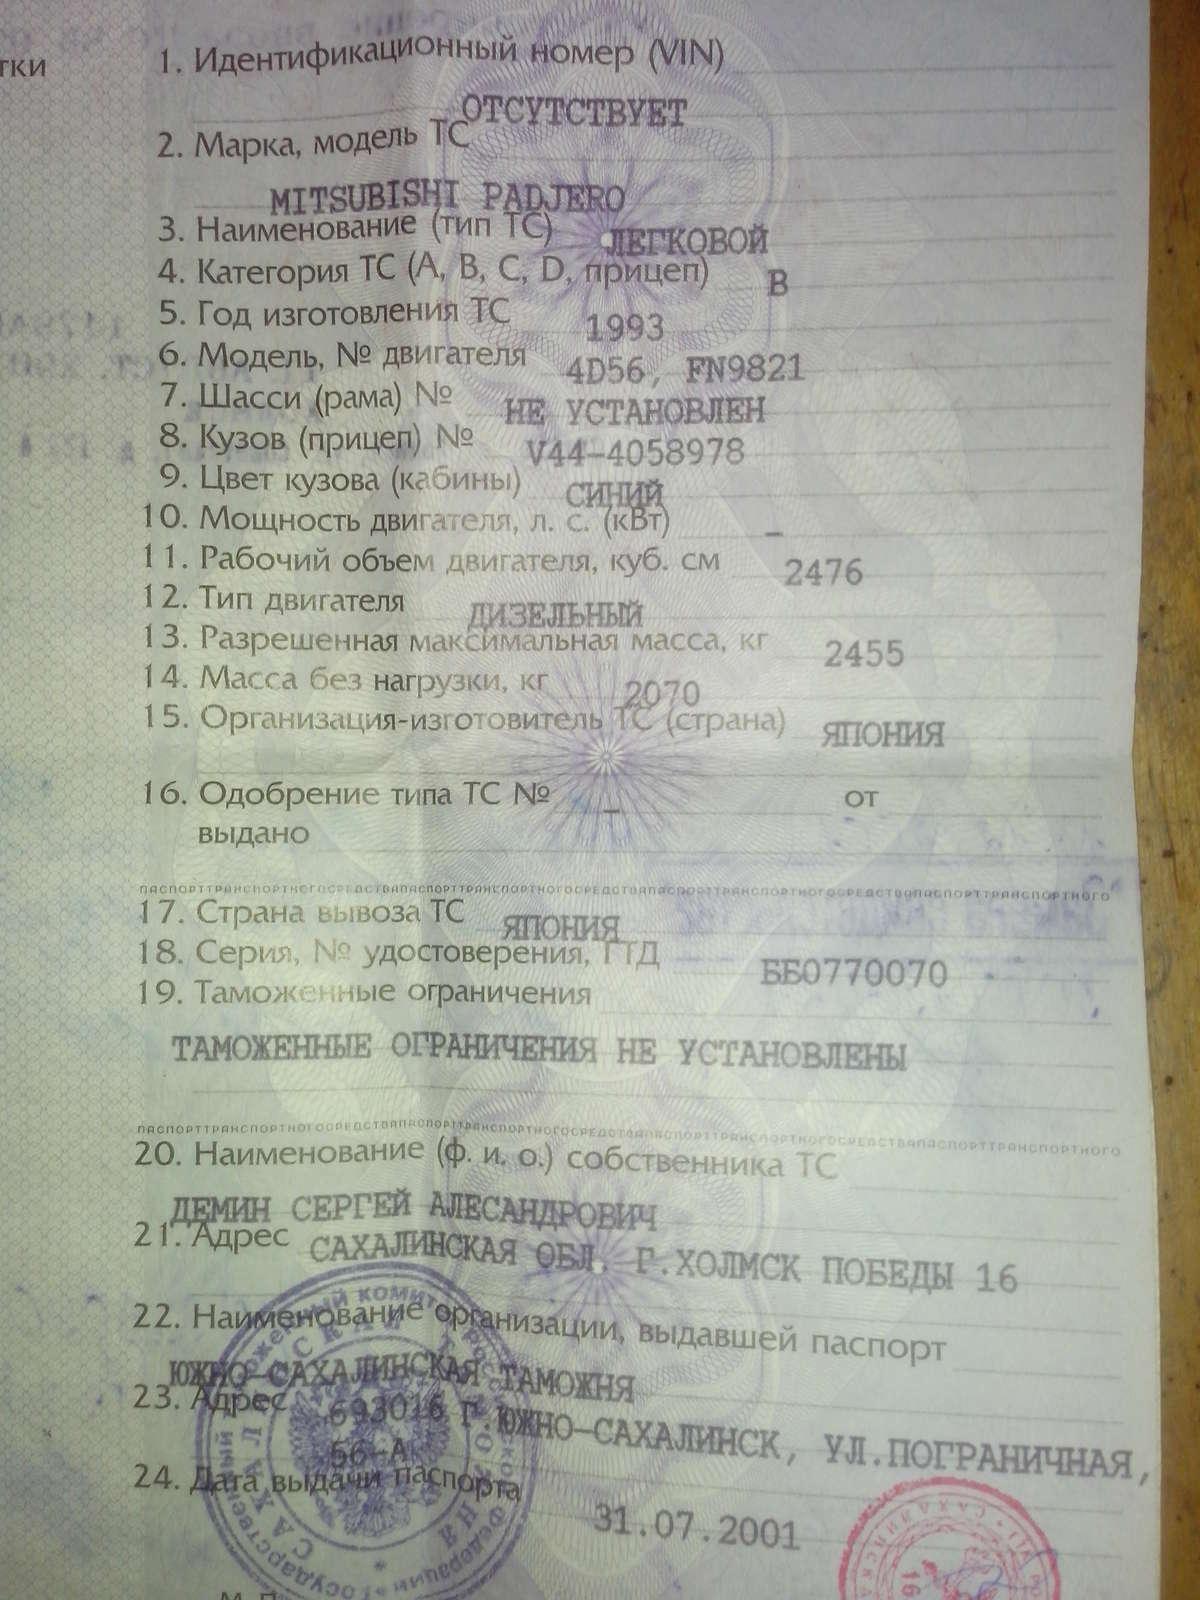 тки
1. Идентификационный номер (VIN)
ОТСУТСТВУЕТ
2. Марка, модель ТС
MITSUBISHI PADJERO
3. Наименование (тип ТС) ЛЕГКОВОЙ
4. Категория ТС (A, B, C, D, прицеп) B
5. Год изготовления ТС 1993
6. Модель, № двигателя 4D56, FN9821
7. Шасси (рама) № НЕ УСТАНОВЛЕН
8. Кузов (прицеп) № V44-4058978
9. Цвет кузова (кабины) СИНИЙ
10. Мощность двигателя, л. с. (кВт) –
11. Рабочий объем двигателя, куб. см 2476
12. Тип двигателя ДИЗЕЛЬНЫЙ
13. Разрешенная максимальная масса, кг 2455
14. Масса без нагрузки, кг 2070
15. Организация-изготовитель ТС (страна) ЯПОНИЯ
16. Одобрение типа ТС № – от
выдано
ПАСПОРТТРАНСПОРТНОГОСРЕДСТВАПАСПОРТТРАНСПОРТНОГОСРЕДСТВАПАСПОРТТРАНСПОРТНОГОСРЕДСТВАПАСПОРТТРАНСПОРТНОГО
17. Страна вывоза ТС ЯПОНИЯ
18. Серия, № удостоверения, ГТД ББ0770070
19. Таможенные ограничения
ТАМОЖЕННЫЕ ОГРАНИЧЕНИЯ НЕ УСТАНОВЛЕНЫ
ПАСПОРТТРАНСПОРТНОГОСРЕДСТВАПАСПОРТТРАНСПОРТНОГОСРЕДСТВАПАСПОРТТРАНСПОРТНОГОСРЕДСТВАПАСПОРТТРАНСПОРТНОГО
20. Наименование (ф. и. о.) собственника ТС
ДЕМИН СЕРГЕЙ АЛЕСАНДРОВИЧ
21. Адрес САХАЛИНСКАЯ ОБЛ. Г.ХОЛМСК ПОБЕДЫ 16
22. Наименование организации, выдавшей паспорт
ЮЖНО-САХАЛИНСКАЯ ТАМОЖНЯ
23. Адрес 693016 Г.ЮЖНО-САХАЛИНСК, УЛ.ПОГРАНИЧНАЯ,
56-А
24. Дата выдачи паспорта 31.07.2001